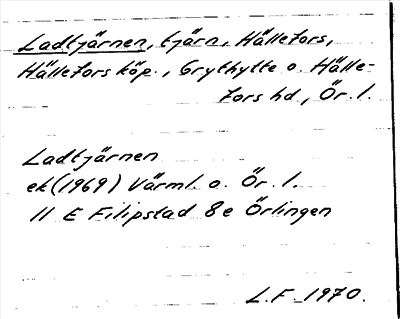 Ladtjärnen, tjärn, Hällefors,
Hällefors köp., Grythytte o. Hälle-
fors hd, Ör. l.
Ladtjärnen
ek (1969) Värml. o. Ör. l.
11 E Filipstad 8e Örlingen
L.F. 1970.